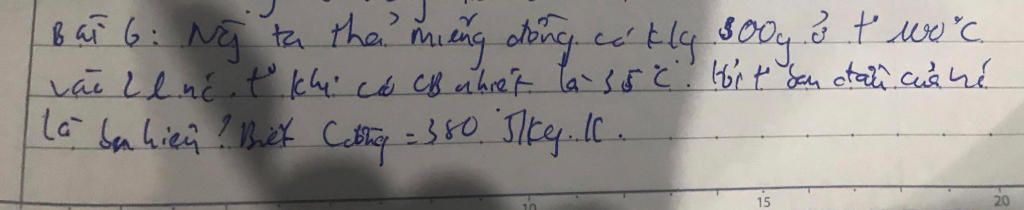 Bài 6: Ng ta thả miếng đồng có klg 300g ở t° 100°C
vào 2l nc. t° khi có CB nhiệt là 35°C. Hỏi t ban đầu của nc
là bn hiêu? Biết Cđồng = 380 J/kg.K.
15
20